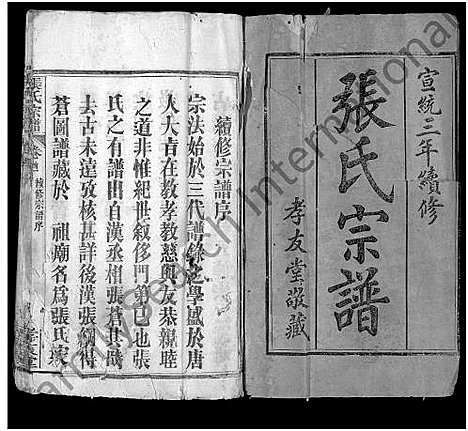 宣統三年續修
張氏宗譜
孝友堂敬藏
續修宗譜序
宗法始於三代譜錄之學盛於唐
人大旨在教孝教慈與友恭親睦
之道非惟紀世叙侈門教已也張
氏之有譜由自漢丞相張蒼其時
去古未遠攷核甚詳後漢張綱得
蒼圖譜藏於 祖廟名為張氏
張氏宗譜 卷首 續修宗譜序
FamilySearch International